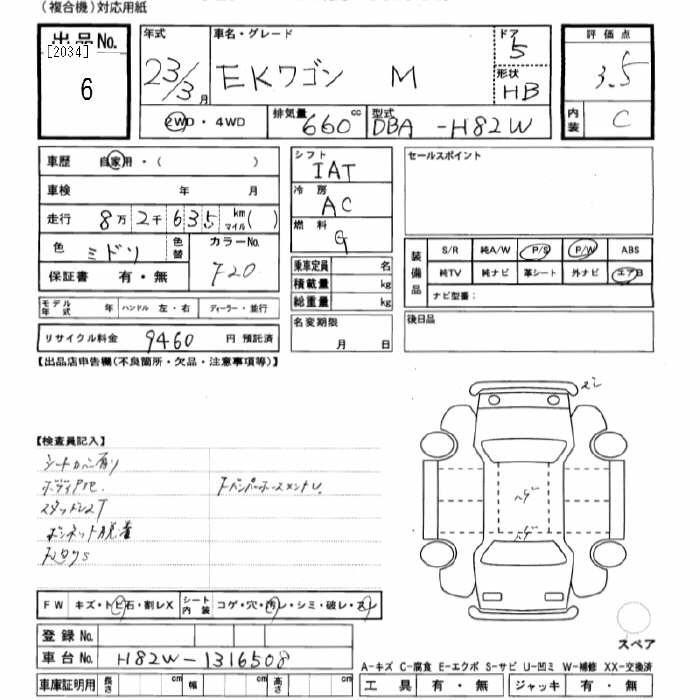 (複合機)対応用紙
出品No. [2034] 6
年式 23/3月
車名・グレード EKワゴン M
ドア 5
形状 HB
評価点 3.5
2WD・4WD
排気量 660 cc
型式 DBA-H82W
内装 C
車歴 自家用・( )
車検 年 月
走行 8万2千635 km マイル( )
色 ミドリ 色替 カラーNo. F20
保証書 有・無
モデル年式 年 ハンドル 左・右 ディーラー・並行
リサイクル料金 9460 円 預託済
シフト IAT
冷房 AC
燃料 G
乗車定員 名
積載量 kg
総重量 kg
名変期限 月 日
セールスポイント
装備品 S/R 純A/W P/S P/W ABS
純TV 純ナビ 革シート 外ナビ エアB
ナビ型番:
後日品
【出品店申告欄(不良箇所・欠品・注意事項等)】
【検査員記入】
シートカバー有り
スタッドレスT
ボンネット脱着
FW キズ・トビ石・割レX シート内装 コゲ・穴・汚レ・シミ・破レ・スレ
登録No.
車台No. H82W-1316508
車庫証明用 長さ cm 幅 cm 高さ cm
スペア
A-キズ C-腐食 E-エクボ S-サビ U-凹ミ W-補修 XX-交換済
工具 有・無 ジャッキ 有・無